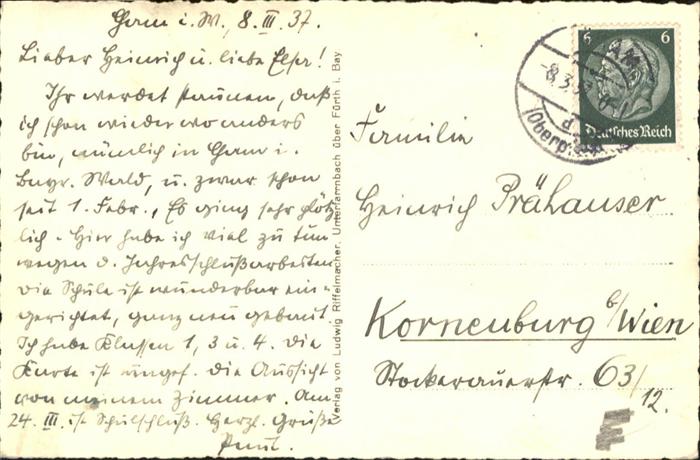 Cham i. W., 8. III. 37.
Lieber Heinrich u. liebe Elsa!
Ihr werdet staunen, daß
ich schon wieder wo anders
bin, nämlich in Cham i.
Bayr. Wald, u. zwar schon
seit 1. Febr., Es ging sehr plötz
lich. Hier habe ich viel zu tun
wegen d. Jahresschlußarbeiten
Die Schule ist wunderbar ein-
gerichtet, ganz neu gebaut
Ich habe Klassen 1, 3 u. 4. Die
Karte ist ungef. die Aussicht
von meinem Zimmer. Am
24. III. ist Schulschluß. Herzl. Grüße
Verlag von Ludwig Riffelmacher, Unterfarrnbach über Fürth i. Bay
6 6
Deutsches Reich
(Oberpf.
Familie
Heinrich Prähauser
Korneuburg b/Wien
Stockerauerstr. 63/12.